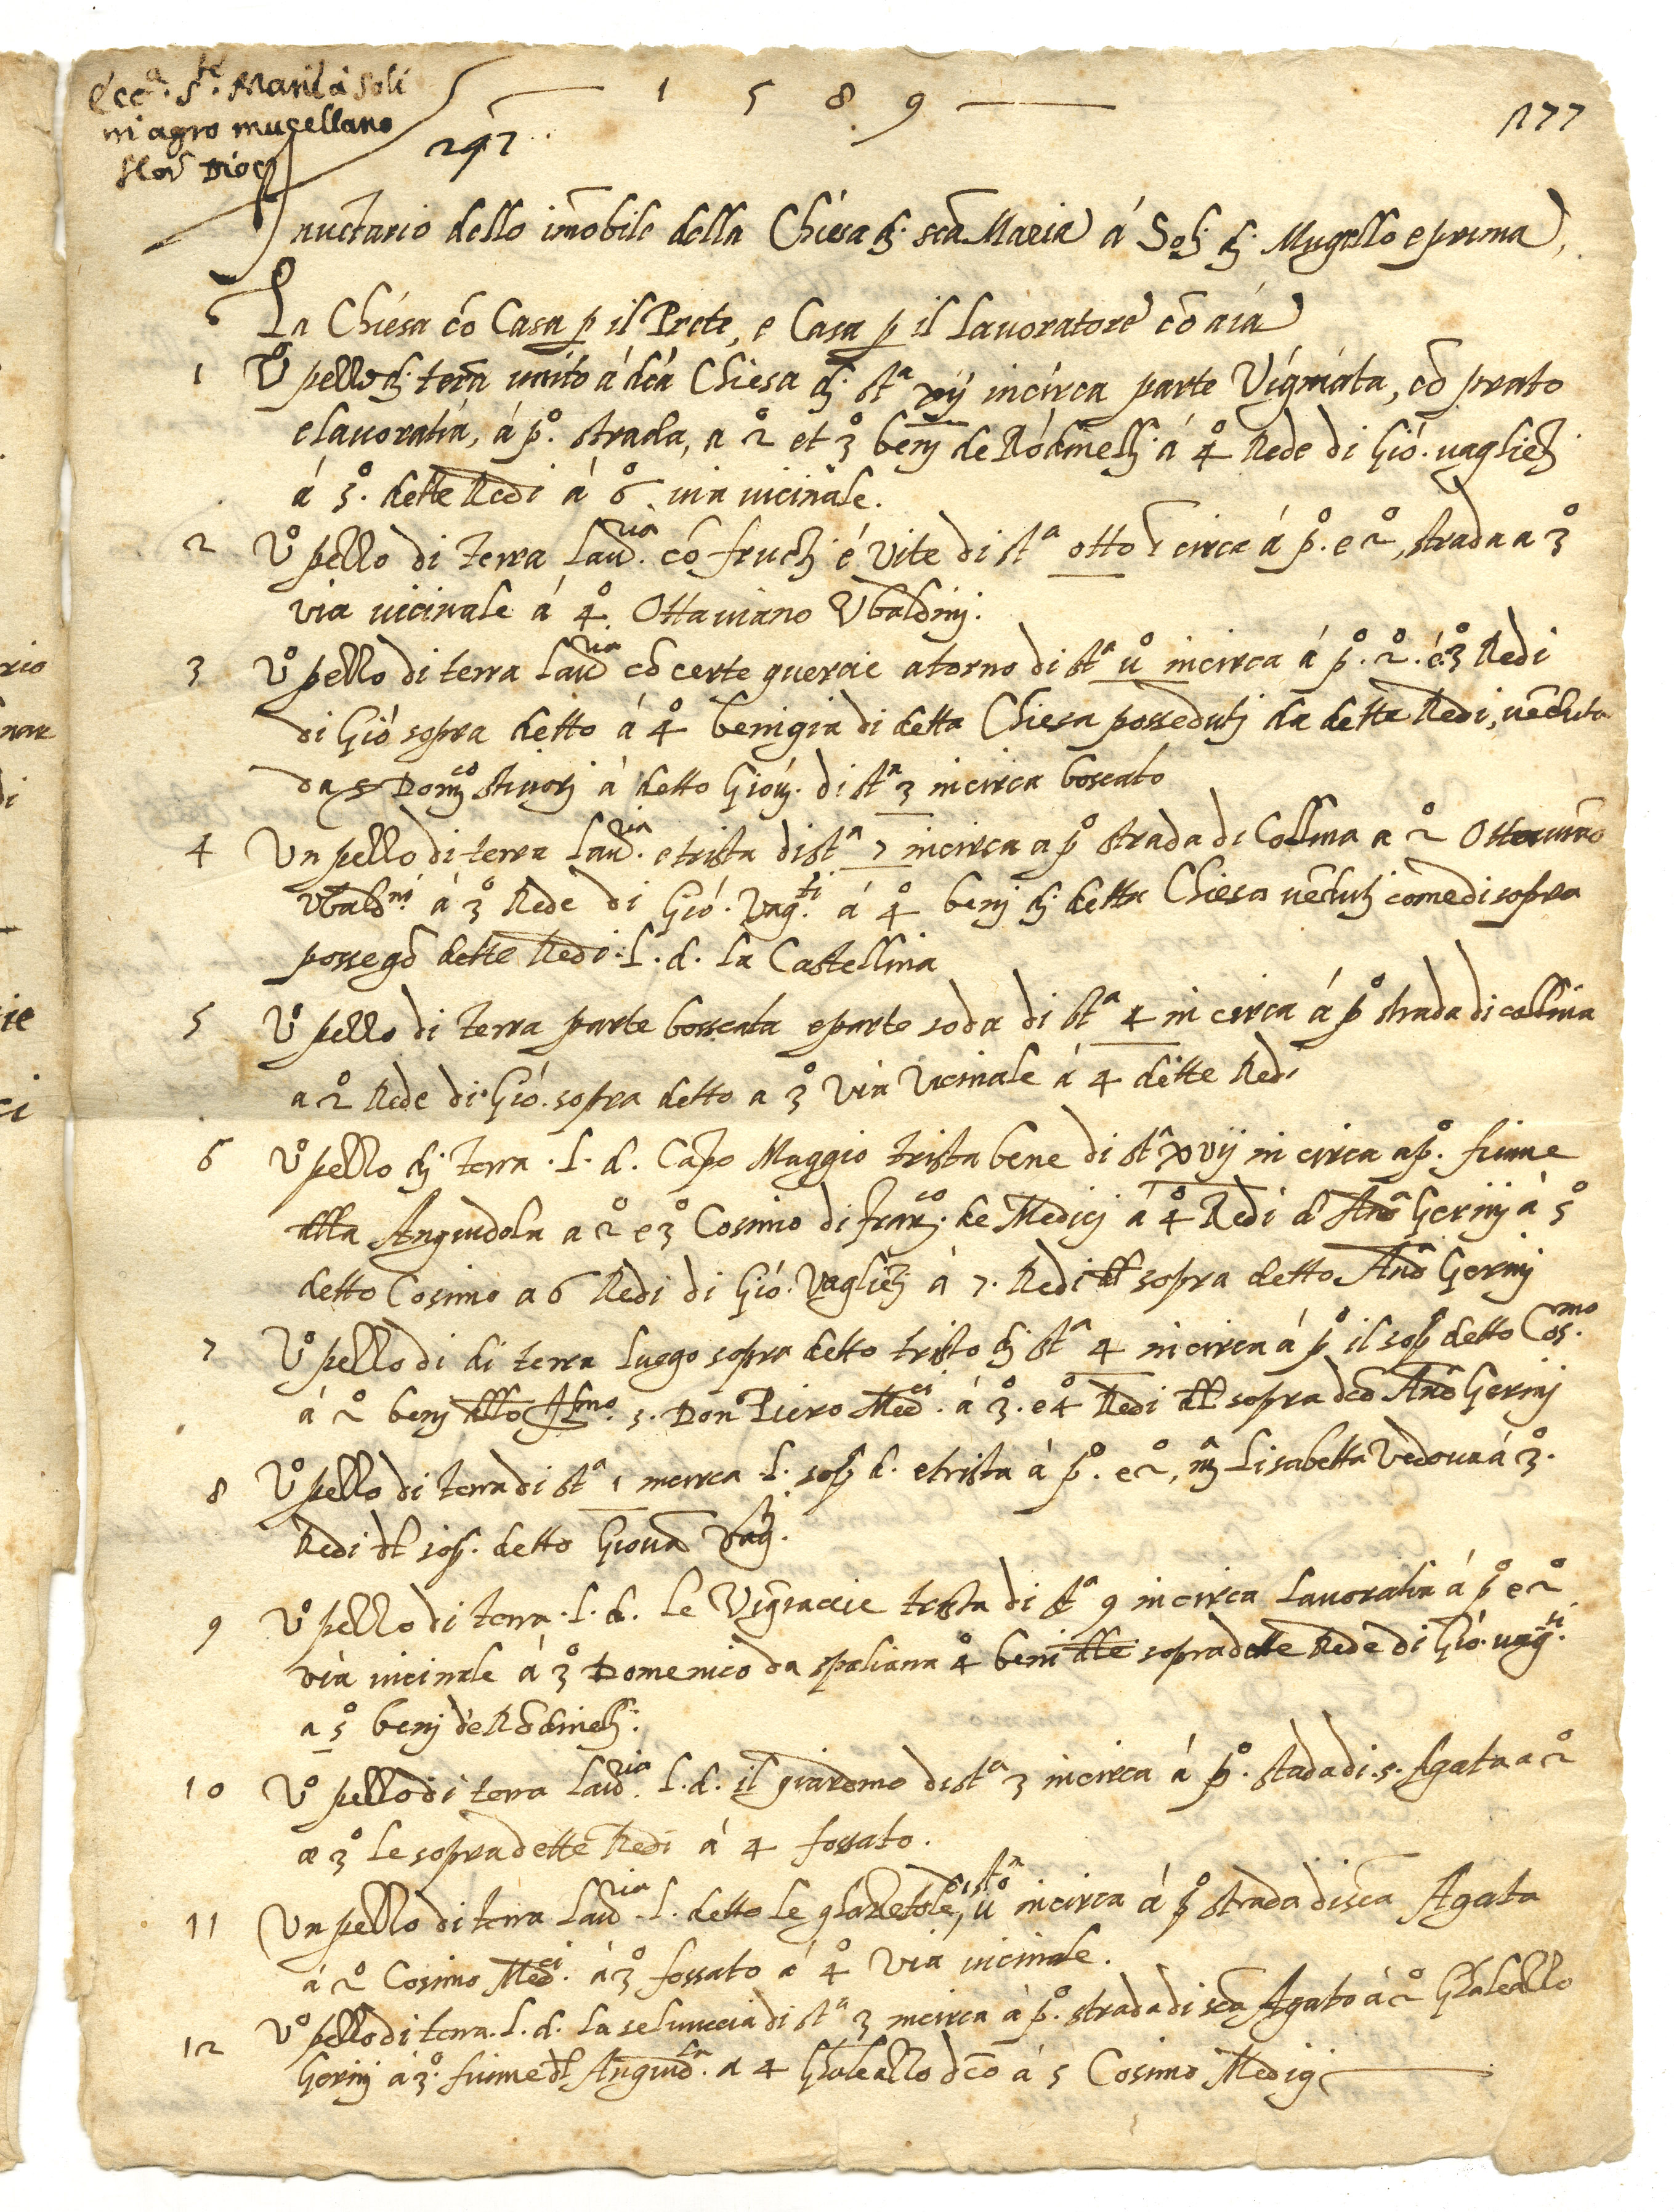 Ecc.a S.te Marie à Soli
in agro mugellano
Flor Dioc
1 5 8 9
297
177
Inuētario dello īmobile della Chiesa di scā Maria á Soli di Mugello e prima,
La Chiesa cō Casa p il Prete, e Casa p il Lauoratore cō aia
1 Vº pezzo di terra unito á dcā Chiesa di stª xij incirca parte Vignata, cō prato
e lauoratia, á pº. strada, a 2º et 3º beni de Rōdinelli á 4º Rede di Gió. uaglieti
á 5º. dette Redi á 6º uia uicinale.
2 Vº pezzo di terra Lau.ria có frutti é Vite di stª otto circa á pº. e 2º, strada a 3º
via uicinale á 4º Ottauiano Vbaldini.
3 Vº pezzo di terra Lau.ria cō certe quercie atorno di stª uº incirca á pº. 2º. é 3º Redi
di Gió sopra detto á 4º beni gia di detta Chiesa posseduti da dette Redi, uēduta
da s Dom.co stinori à detto Gioū. di stª 3 incirca boscato
4 Vn pezzo di terra Lau.ria e trista di stª 7 incirca a pº strada di Collina a 2º Ottauiano
Vbald.ni á 3º Rede di Gió. Vag.ti á 4º beni di detta Chiesa uēduti come di sopra
possegō dette Redi. L. d. La Castellina
5 Vº pezzo di terra parte boscata e parte soda di stª 4 in circa á pº strada di collina
a 2º Rede di Gió. sopra detto a 3º Via Vicinale á 4 dette Redi
6 Vº pezzo di terra. L. d. Capo Maggio trista bene di stª xvij in circa a pº. fiume
dlla Anguidola a 2º e 3º Cosimo di fran.co de Medici á 4º Redi d Anº Gerinj á 5º
detto Cosimo a 6 Redi di Gió. Vaglieti à 7. Redi dl sopra detto Anº Gerinj
7 Vº pezzo di di terra Luogo sopra detto tristo di stª 4 incirca á pº il sop detto Cos.mo
á 2º beni dllo Ill.mo s. Don Piero Med.ci á 3º. e 4º Redi dl sopra dcō Anº Gerinj
8 Vº pezzo di terra di stª 1 incirca L. sop d. e trista à pº. e 2º, mª Lisabetta Vedoua á 3º.
Redi dl sop. detto Giouā Vag.ti
9 Vº pezzo di terra. L. d. Le Vignaccie trista di stª 9 incirca Lauoratia á pº e 2º
via uicinale á 3º Domenico da spaliana 4º beni dlle sopradette Rede di Gió. uag.ti
a 5º beni de Rōdinelli.
10 Vº pezzo di terra Lau.ria L. d. il giardino di stª 3 incirca á pº. stada di. s. Agata a 2º
a 3º Le sopradette Redi á 4 fossato.
11 Vn pezzo di terra Lau.ria L. detto Le ghiaretole, di stª uº incirca á pº strada di scā Agata
á 2º Cosimo Med.ci á 3º fossato á 4º Via uicinale.
12 Vº pezzo di terra. L. d. La seluuccia di stª 3 incirca á pº. strada di scā Agata á 2º Ghaleazzo
Gerinj á 3º. fiume dl Anguid.la a 4 Ghaleazzo dcō á 5 Cosimo Medici
rio